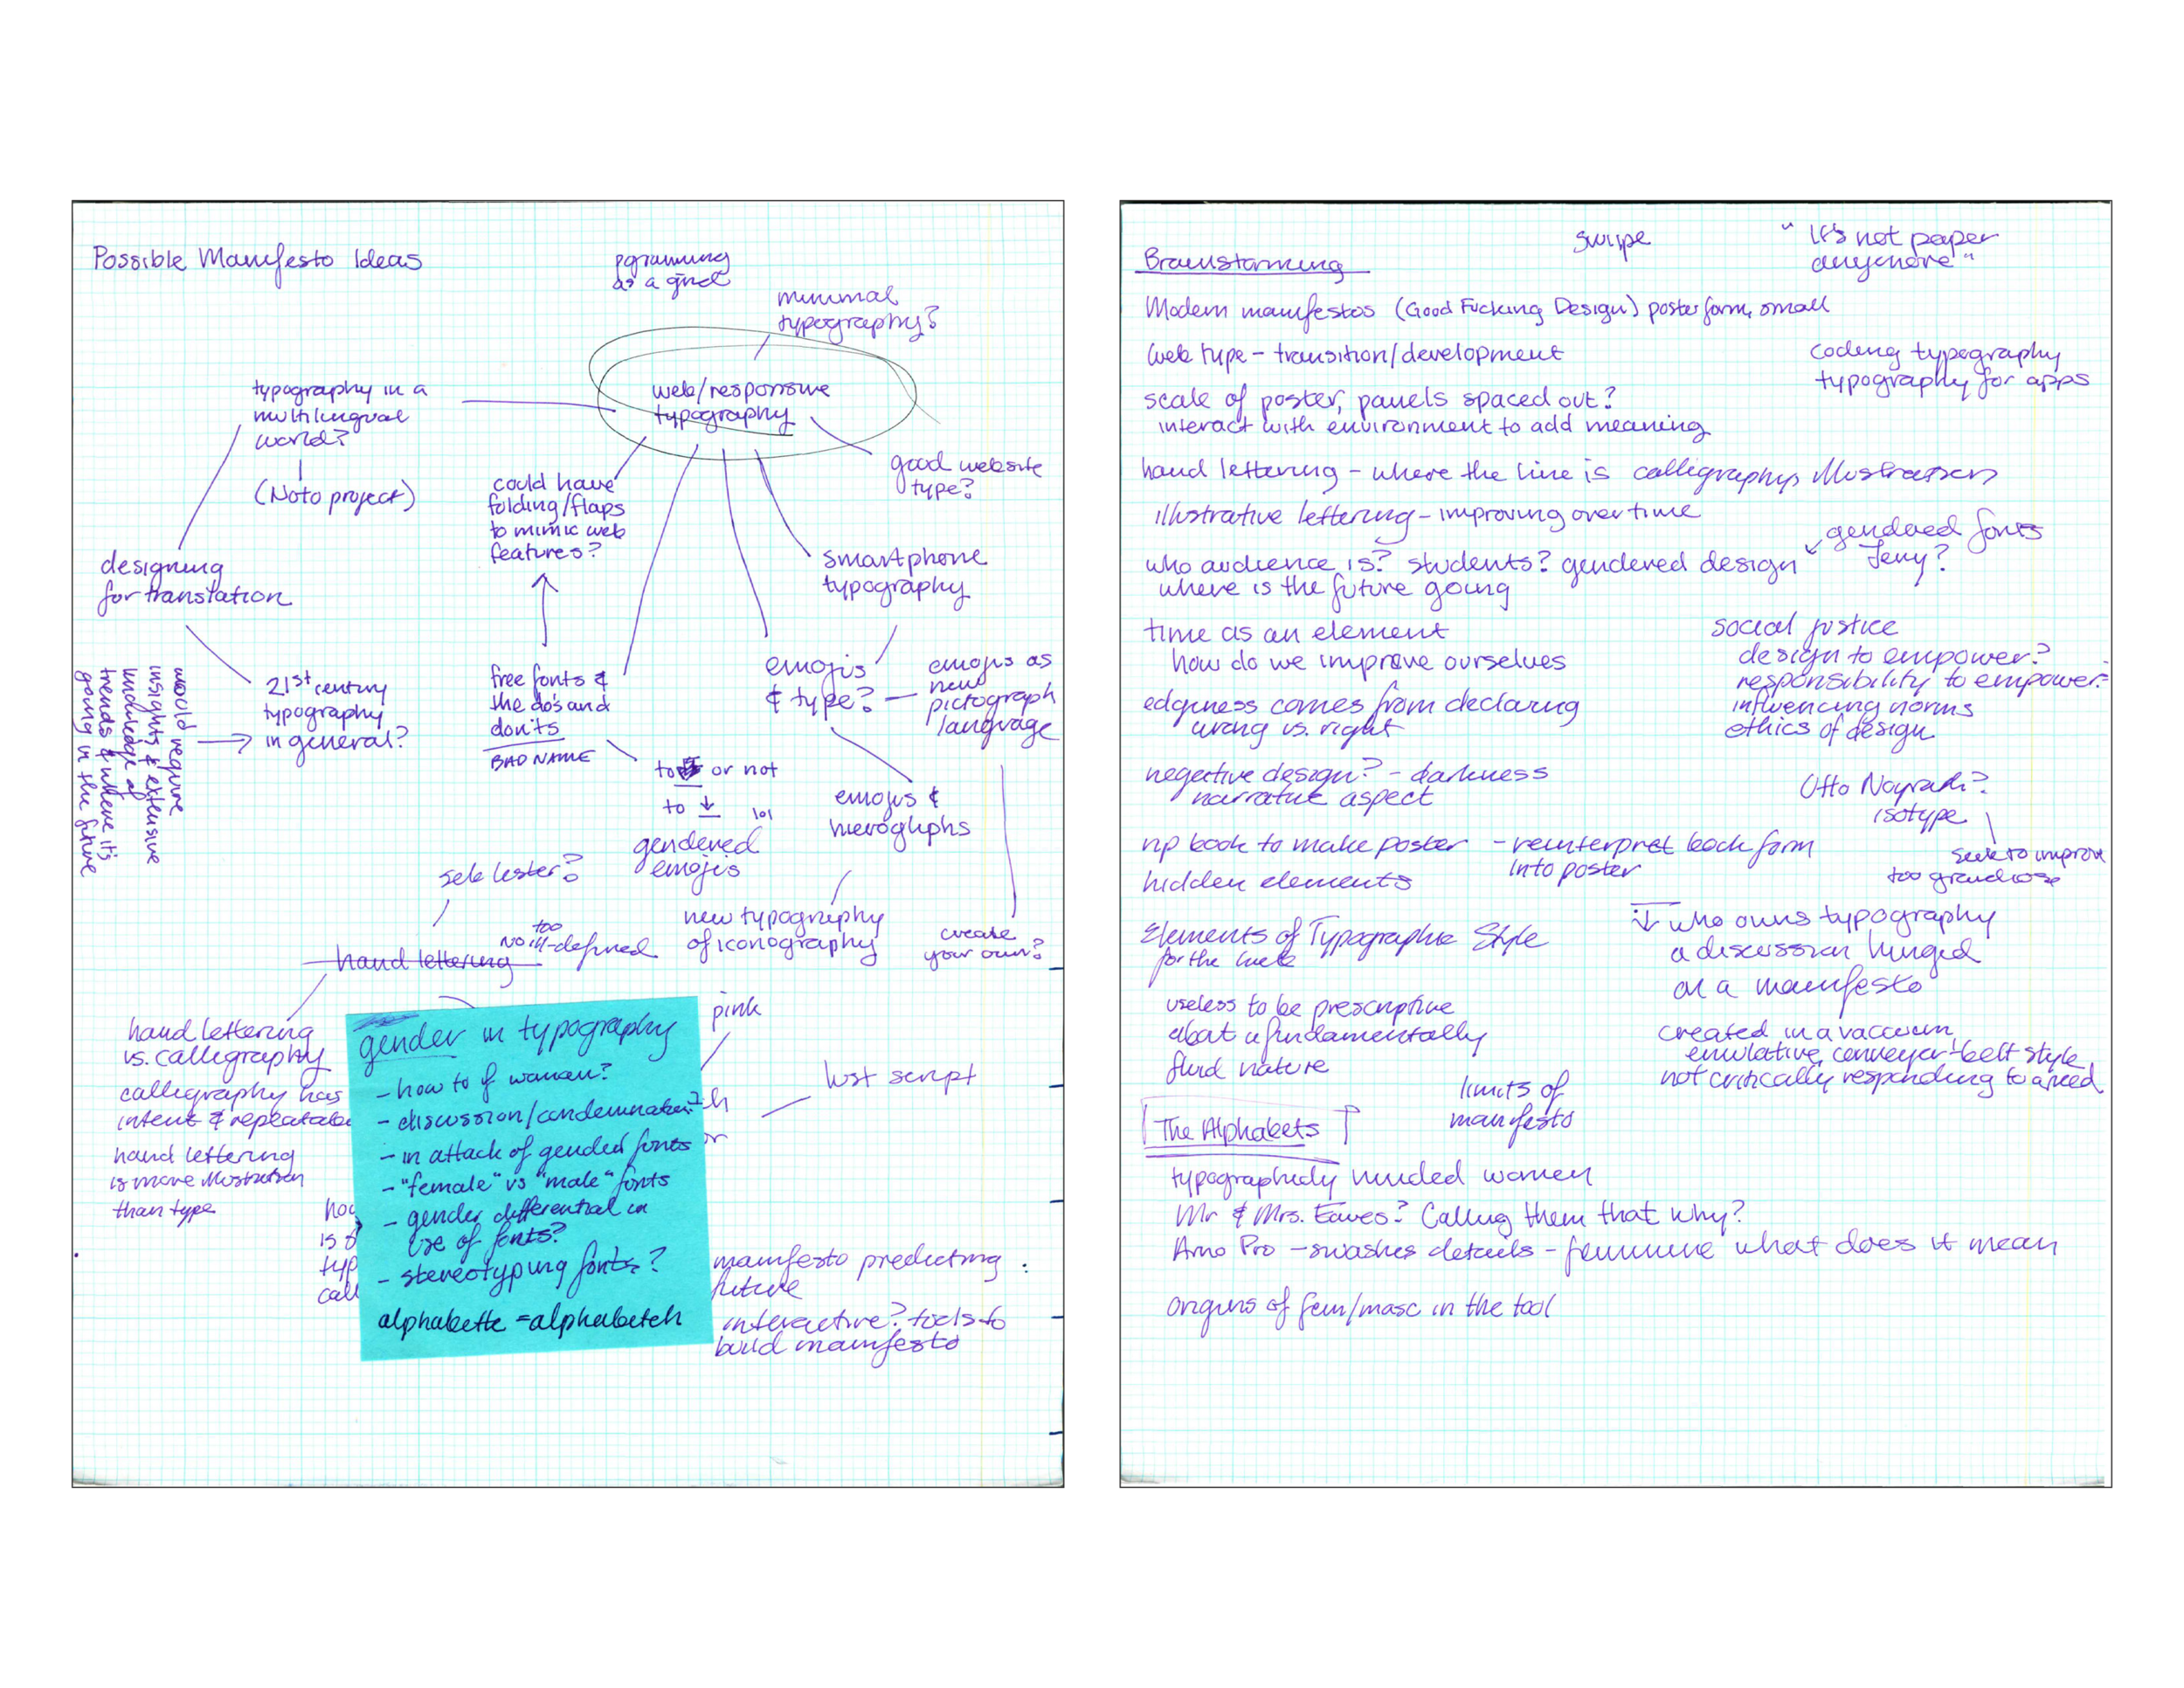 Possible Manifesto Ideas
as a grid
minimal
typography?
web/responsive
typography
typography in a
multilingual
world?
(Noto project)
good website
type?
could have
folding/flaps
to mimic web
features?
designing
for translation
smartphone
typography
would require
insights & extensive
knowledge of
trends & where it's
going in the future
21st century
typography
in general?
free fonts &
the do's and
don'ts
BAD NAME
emojis
& type?
emojis as
new
pictograph
language
to or not
to ↓
lol
gendered
emojis
emojis &
hieroglyphs
seb lester?
new typography
of iconography
create
your own?
hand lettering
too
No ill-defined
hand lettering
vs. calligraphy
calligraphy has
intent & repeatable
hand lettering
is more illustration
than type
pink
lust script
gender in typography
- how to if woman?
- discussion/condemnation?
- in attack of gended fonts
- "female" vs "male" fonts
- gender differential in
use of fonts?
- stereotyping fonts?
alphabette = alphabetch
is
typ
call
manifesto predicting
future
interactive? tools to
build manifesto
swipe
"It's not paper
anymore"
Brainstorming
Modern manifestos (Good Fucking Design) poster form, small
web type - transition/development
coding typography
typography for apps
scale of poster, panels spaced out?
interact with environment to add meaning
hand lettering - where the line is calligraphy, illustration
illustrative lettering - improving over time
gendered fonts
who audience is? students? gendered design
where is the future going
time as an element
how do we improve ourselves
social justice
design to empower?
responsibility to empower
influencing norms
ethics of design
edginess comes from declaring
wrong vs. right
negative design? - darkness
narrative aspect
Otto
isotype
seek to improve
too grandiose
rip book to make poster - reinterpret book form
into poster
hidden elements
who owns typography
a discussion hinged
on a manifesto
Elements of Typographic Style
for the web
useless to be prescriptive
about a fundamentally
fluid nature
created in a vaccuum,
emulative, conveyer-belt style
not critically responding to a need
limits of
manifesto
The Alphabets
typographicly minded women
Mr & Mrs. Eaves? Calling them that why?
Arno Pro - swashes details - feminine what does it mean
origins of fem/masc in the tool